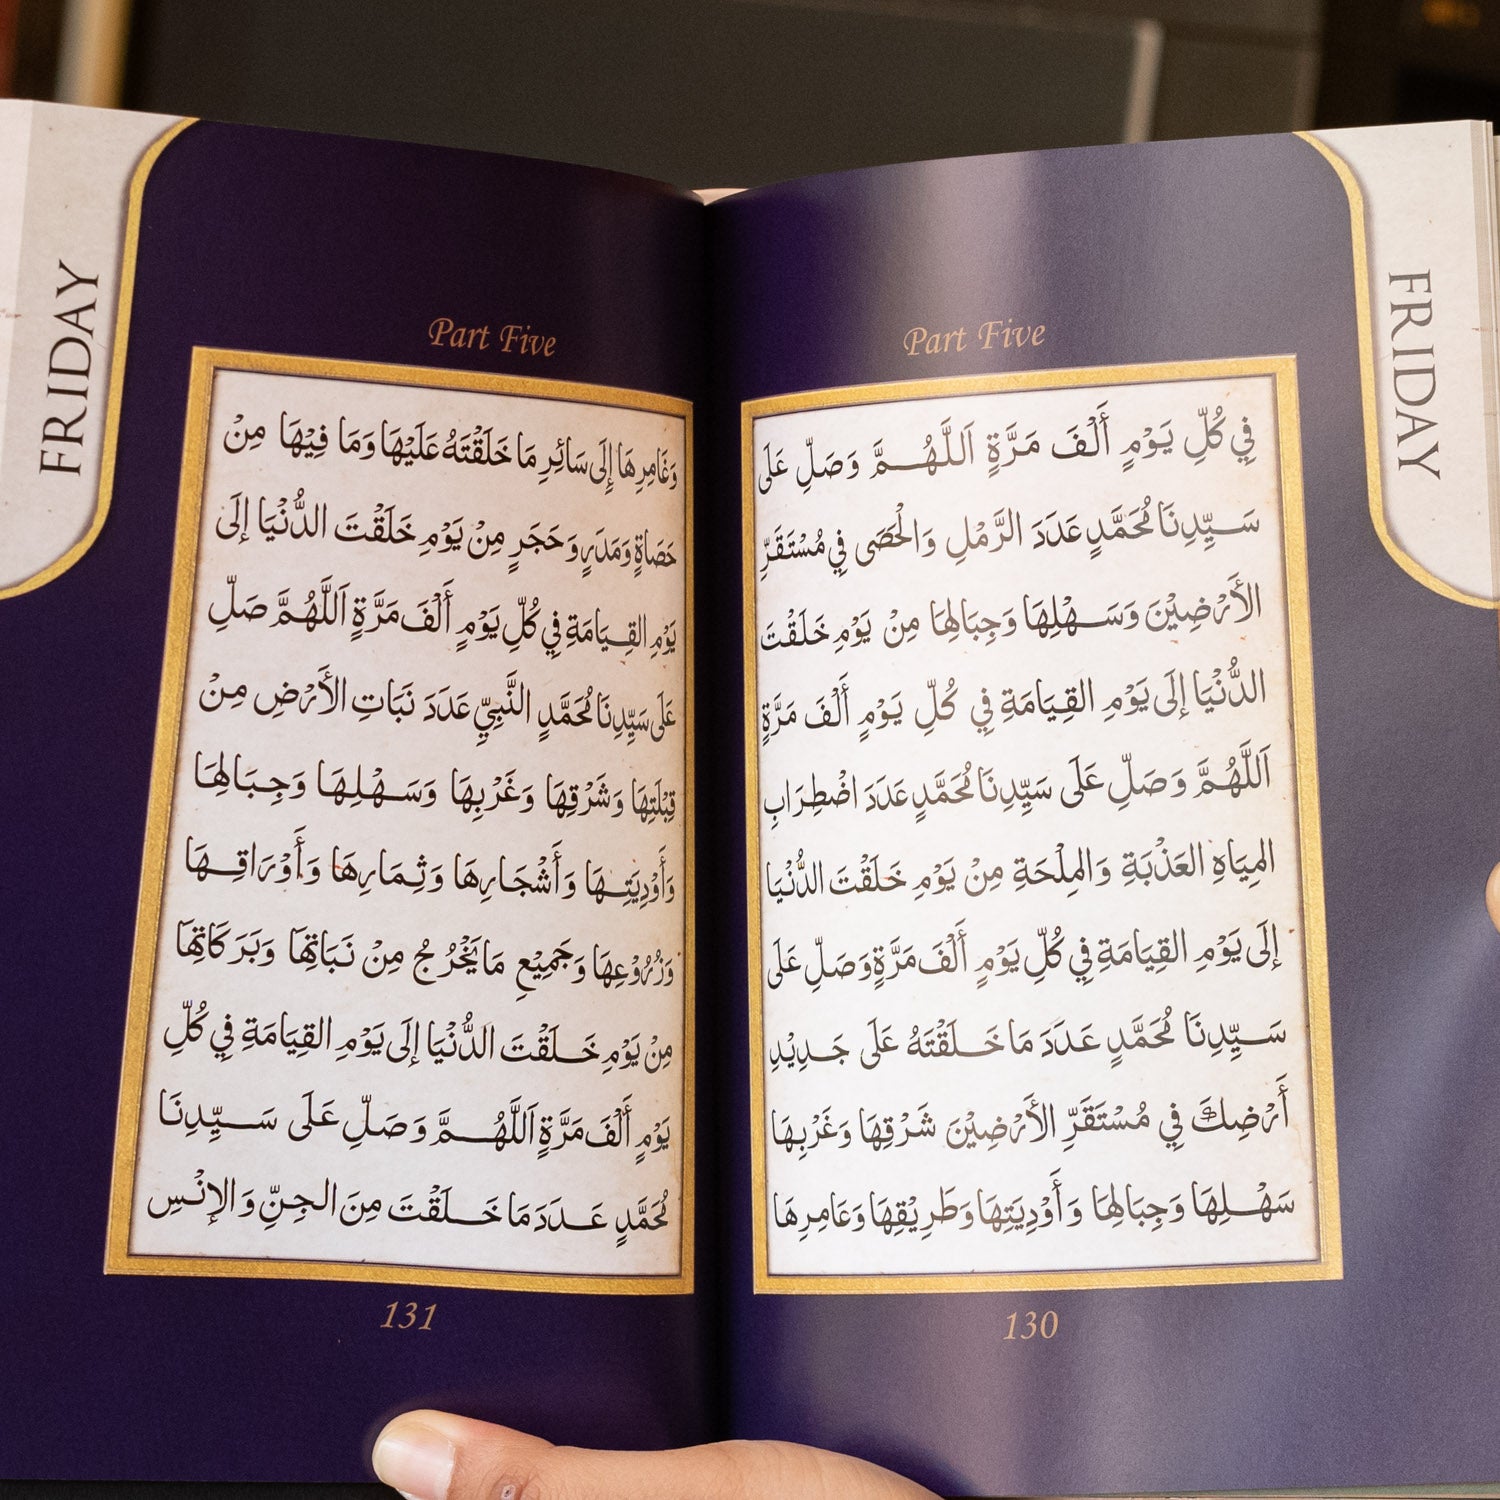 FRIDAY
Part Five
فِي كُلِّ يَوْمٍ أَلْفَ مَرَّةٍ اَللَّهُمَّ وَصَلِّ عَلَى
سَيِّدِنَا مُحَمَّدٍ عَدَدَ الرَّمْلِ وَالْحَصَى فِي مُسْتَقَرِّ
الأَرْضِيْنَ وَسَهْلِهَا وَجِبَالِهَا مِنْ يَوْمِ خَلَقْتَ
الدُّنْيَا إِلَى يَوْمِ القِيَامَةِ فِي كُلِّ يَوْمٍ أَلْفَ مَرَّةٍ
اَللَّهُمَّ وَصَلِّ عَلَى سَيِّدِنَا مُحَمَّدٍ عَدَدَ اضْطِرَابِ
المِيَاهِ العَذْبَةِ وَالمِلْحَةِ مِنْ يَوْمِ خَلَقْتَ الدُّنْيَا
إِلَى يَوْمِ القِيَامَةِ فِي كُلِّ يَوْمٍ أَلْفَ مَرَّةٍ وَصَلِّ عَلَى
سَيِّدِنَا مُحَمَّدٍ عَدَدَ مَا خَلَقْتَهُ عَلَى جَدِيْدِ
أَرْضِكَ فِي مُسْتَقَرِّ الأَرْضِيْنَ شَرْقِهَا وَغَرْبِهَا
سَهْلِهَا وَجِبَالِهَا وَأَوْدِيَتِهَا وَطَرِيْقِهَا وَعَامِرِهَا
130
FRIDAY
Part Five
وَغَامِرِهَا إِلَى سَائِرِ مَا خَلَقْتَهُ عَلَيْهَا وَمَا فِيْهَا مِنْ
حَصَاةٍ وَمَدَرٍ وَحَجَرٍ مِنْ يَوْمِ خَلَقْتَ الدُّنْيَا إِلَى
يَوْمِ القِيَامَةِ فِي كُلِّ يَوْمٍ أَلْفَ مَرَّةٍ اَللَّهُمَّ صَلِّ
عَلَى سَيِّدِنَا مُحَمَّدٍ النَّبِيِّ عَدَدَ نَبَاتِ الأَرْضِ مِنْ
قِبْلَتِهَا وَشَرْقِهَا وَغَرْبِهَا وَسَهْلِهَا وَجِبَالِهَا
وَأَوْدِيَتِهَا وَأَشْجَارِهَا وَثِمَارِهَا وَأَوْرَاقِهَا
وَزُرُوْعِهَا وَجَمِيْعِ مَا يَخْرُجُ مِنْ نَبَاتِهَا وَبَرَكَاتِهَا
مِنْ يَوْمِ خَلَقْتَ الدُّنْيَا إِلَى يَوْمِ القِيَامَةِ فِي كُلِّ
يَوْمٍ أَلْفَ مَرَّةٍ اَللَّهُمَّ وَصَلِّ عَلَى سَيِّدِنَا
مُحَمَّدٍ عَدَدَ مَا خَلَقْتَ مِنَ الجِنِّ وَالإِنْسِ
131